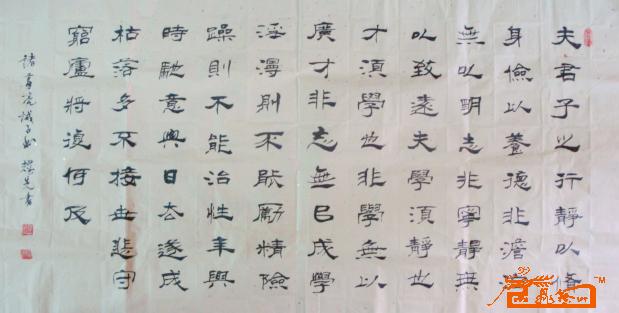 夫君子之行靜以脩
身儉以養德非澹泊
無以明志非寧靜無
以致遠夫學須靜也
才須學也非學無以
廣才非志無已成學
淫漫則不能勵精險
躁則不能治性年與
時馳意與日去遂成
枯落多不接世悲守
窮廬將復何及
諸葛亮誡子書